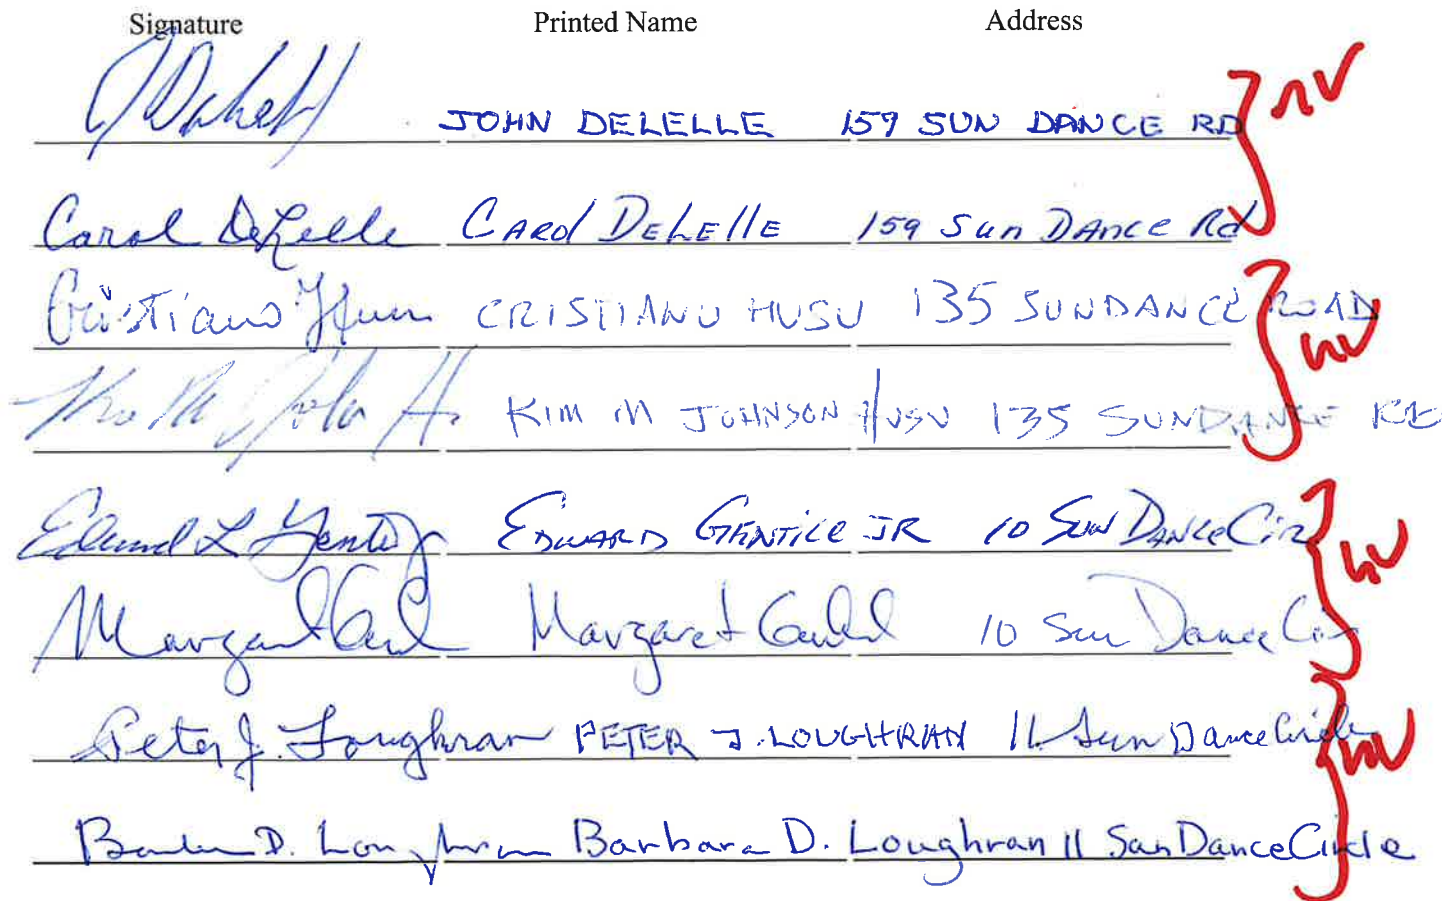 Signature Printed Name Address
JOHN DELELLE 159 SUN DANCE RD nv
Carol DeLelle CAROl DELEllE 159 Sun DANCe Rd
Cristiano Husu CRISTIANO HUSU 135 SUNDANCE ROAD nv
KIM M JOHNSON HUSU 135 SUNDANCE RD
Edward L Gentile Jr EDWARD GENTILE JR 10 SUN DANCE Cir nv
Margaret Margaret 10 Sun Dance Cir
Peter J. Loughran PETER J. LOUGHRAN 11 Sun Dance Circle nv
Barbara D. Loughran Barbara D. Loughran 11 Sun Dance Circle